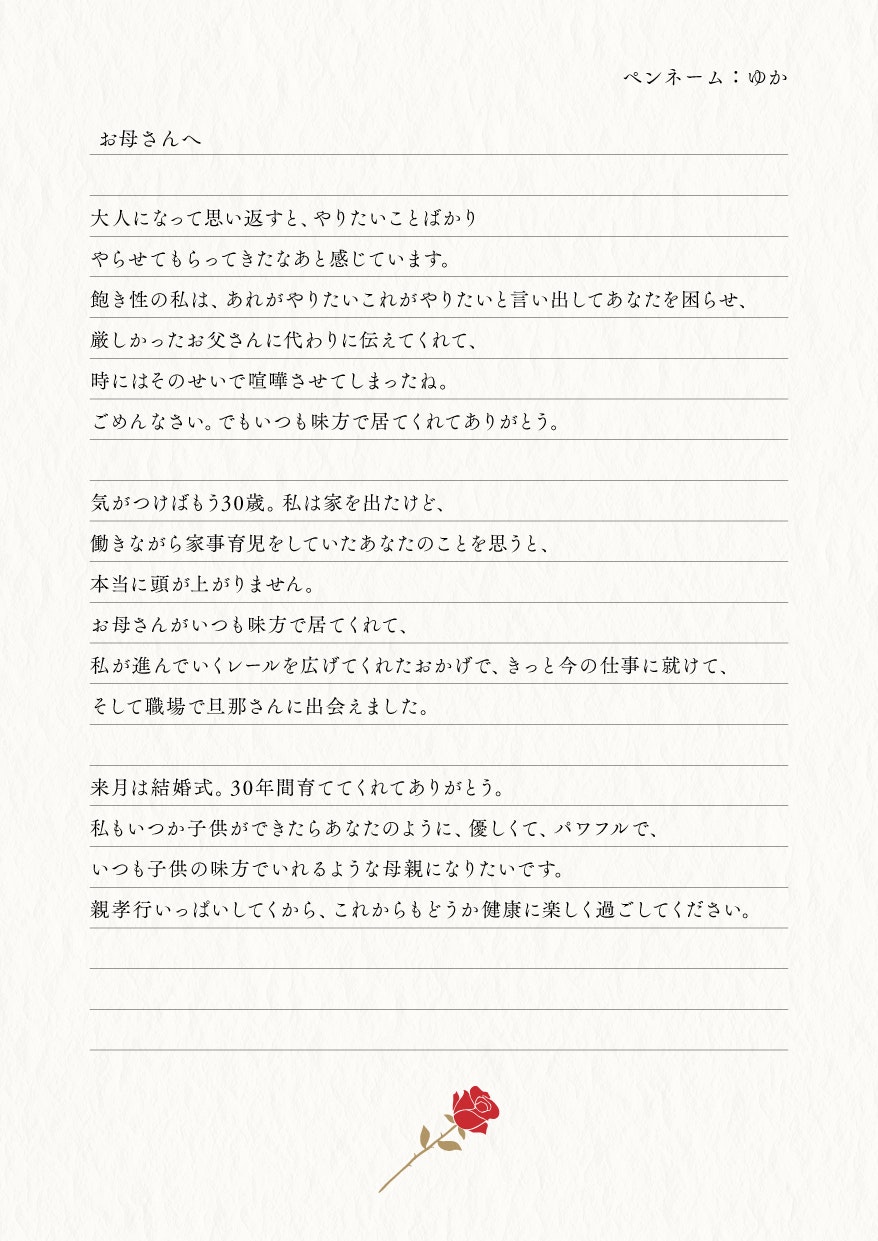 ペンネーム：ゆか
お母さんへ
大人になって思い返すと、やりたいことばかり
やらせてもらってきたなあと感じています。
飽き性の私は、あれがやりたいこれがやりたいと言い出してあなたを困らせ、
厳しかったお父さんに代わりに伝えてくれて、
時にはそのせいで喧嘩させてしまったね。
ごめんなさい。でもいつも味方で居てくれてありがとう。
気がつけばもう30歳。私は家を出たけど、
働きながら家事育児をしていたあなたのことを思うと、
本当に頭が上がりません。
お母さんがいつも味方で居てくれて、
私が進んでいくレールを広げてくれたおかげで、きっと今の仕事に就けて、
そして職場で旦那さんに出会えました。
来月は結婚式。30年間育ててくれてありがとう。
私もいつか子供ができたらあなたのように、優しくて、パワフルで、
いつも子供の味方でいれるような母親になりたいです。
親孝行いっぱいしてくから、これからもどうか健康に楽しく過ごしてください。